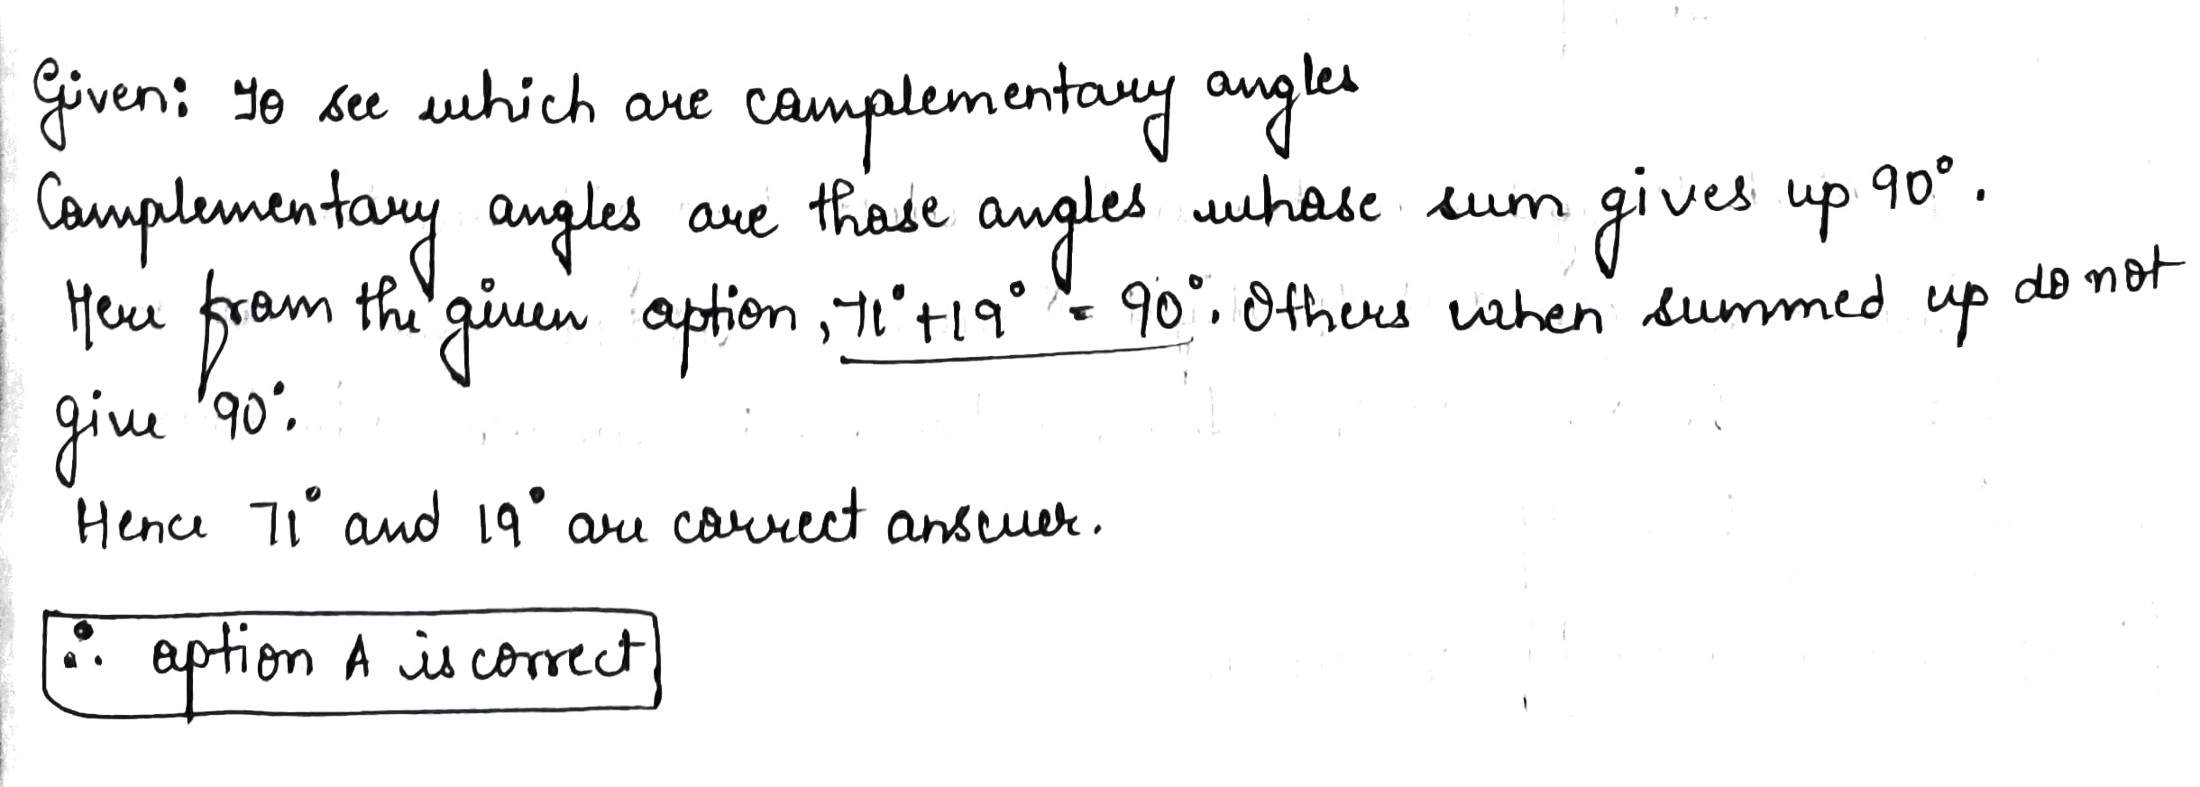 Given: To see which are complementary angles
Complementary angles are those angles whose sum gives up 90°.
Here from the given option, 71° + 19° = 90°. Others when summed up do not
give 90°.
Hence 71° and 19° are correct answer.
∴ option A is correct